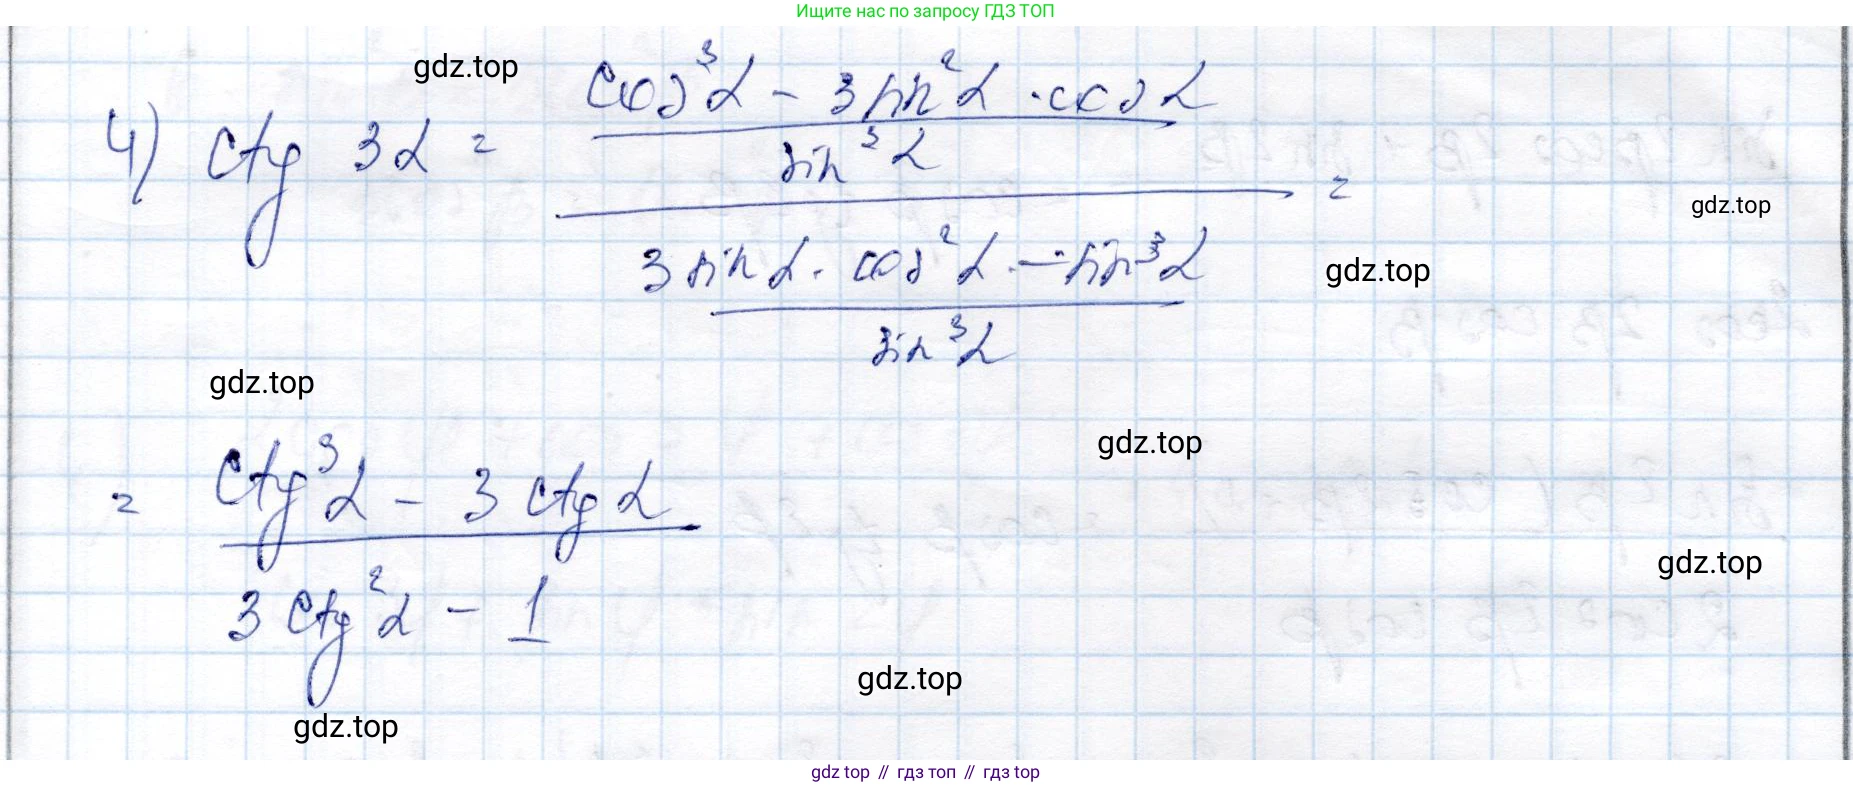 Ищите нас по запросу ГДЗ ТОП
gdz.top
4) ctg 3α = (cos³α - 3 sin²α · cos α / sin³α) / (3 sin α · cos²α - sin³α / sin³α) =
gdz.top
gdz.top
gdz.top
gdz.top
= ctg³α - 3 ctg α / 3 ctg²α - 1
gdz.top
gdz.top
gdz.top
gdz top // гдз топ // гдз top